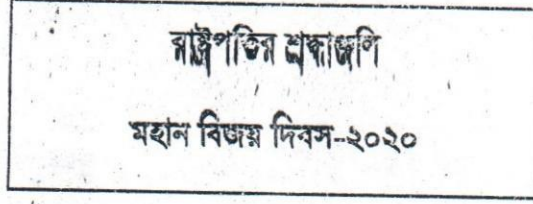 রাষ্ট্রপতির শ্রদ্ধাঞ্জলি
মহান বিজয় দিবস-২০২০